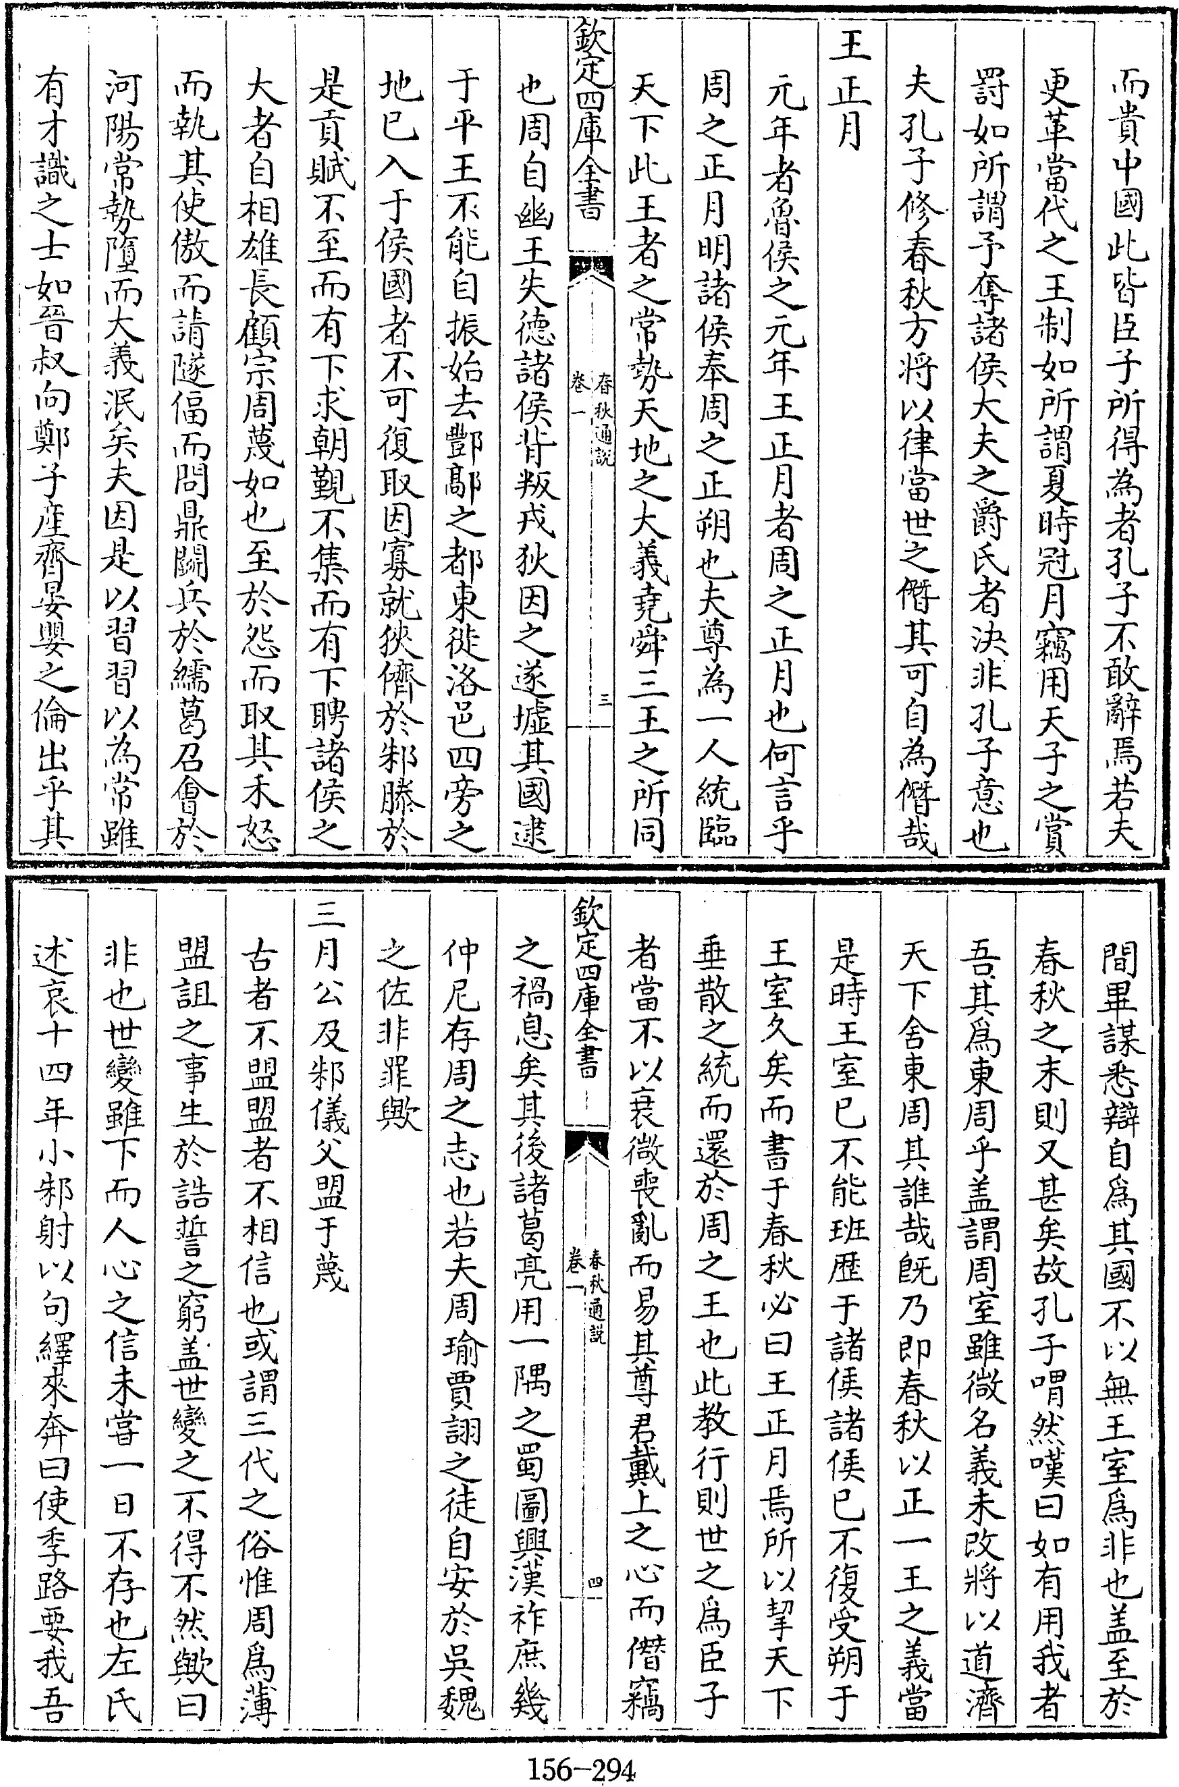 而貴中國此皆臣子所得為者孔子不敢辭焉若夫
更革當代之王制如所謂夏時冠月竊用天子之賞
罰如所謂予奪諸侯大夫之爵氏者決非孔子意也
夫孔子修春秋方將以律當世之僭其可自為僭哉
王正月
元年者魯侯之元年王正月者周之正月也何言乎
周之正月明諸侯奉周之正朔也夫尊為一人統臨
天下此王者之常勢天地之大義堯舜三王之所同
欽定四庫全書
春秋通説
卷一
三
也周自幽王失德諸侯背叛戎狄因之遂墟其國逮
于平王不能自振始去酆鄗之都東徙洛邑四旁之
地已入于侯國者不可復取因寡就狹儕於邾滕於
是貢賦不至而有下求朝覲不集而有下聘諸侯之
大者自相雄長顧宗周蔑如也至於怨而取其禾怒
而執其使傲而請隧偪而問鼎鬭兵於繻葛召會於
河陽常勢墮而大義泯矣夫因是以習習以為常雖
有才識之士如晉叔向鄭子產齊晏嬰之倫出乎其
間畢謀悉辯自爲其國不以無王室爲非也盖至於
春秋之末則又甚矣故孔子喟然嘆曰如有用我者
吾其爲東周乎盖謂周室雖微名義未改將以道濟
天下舍東周其誰哉旣乃即春秋以正一王之義當
是時王室已不能班歷于諸侯諸侯已不復受朔于
王室久矣而書于春秋必曰王正月焉所以挈天下
垂散之統而還於周之王也此教行則世之爲臣子
者當不以衰微喪亂而易其尊君戴上之心而僭竊
欽定四庫全書
春秋通説
卷一
四
之禍息矣其後諸葛亮用一隅之蜀圖興漢祚庶幾
仲尼存周之志也若夫周瑜賈詡之徒自安於吳魏
之佐非罪歟
三月公及邾儀父盟于蔑
古者不盟盟者不相信也或謂三代之俗惟周爲薄
盟詛之事生於誥誓之窮盖世變之不得不然歟曰
非也世變雖下而人心之信未嘗一日不存也左氏
述哀十四年小邾射以句繹來奔曰使季路要我吾
156-294